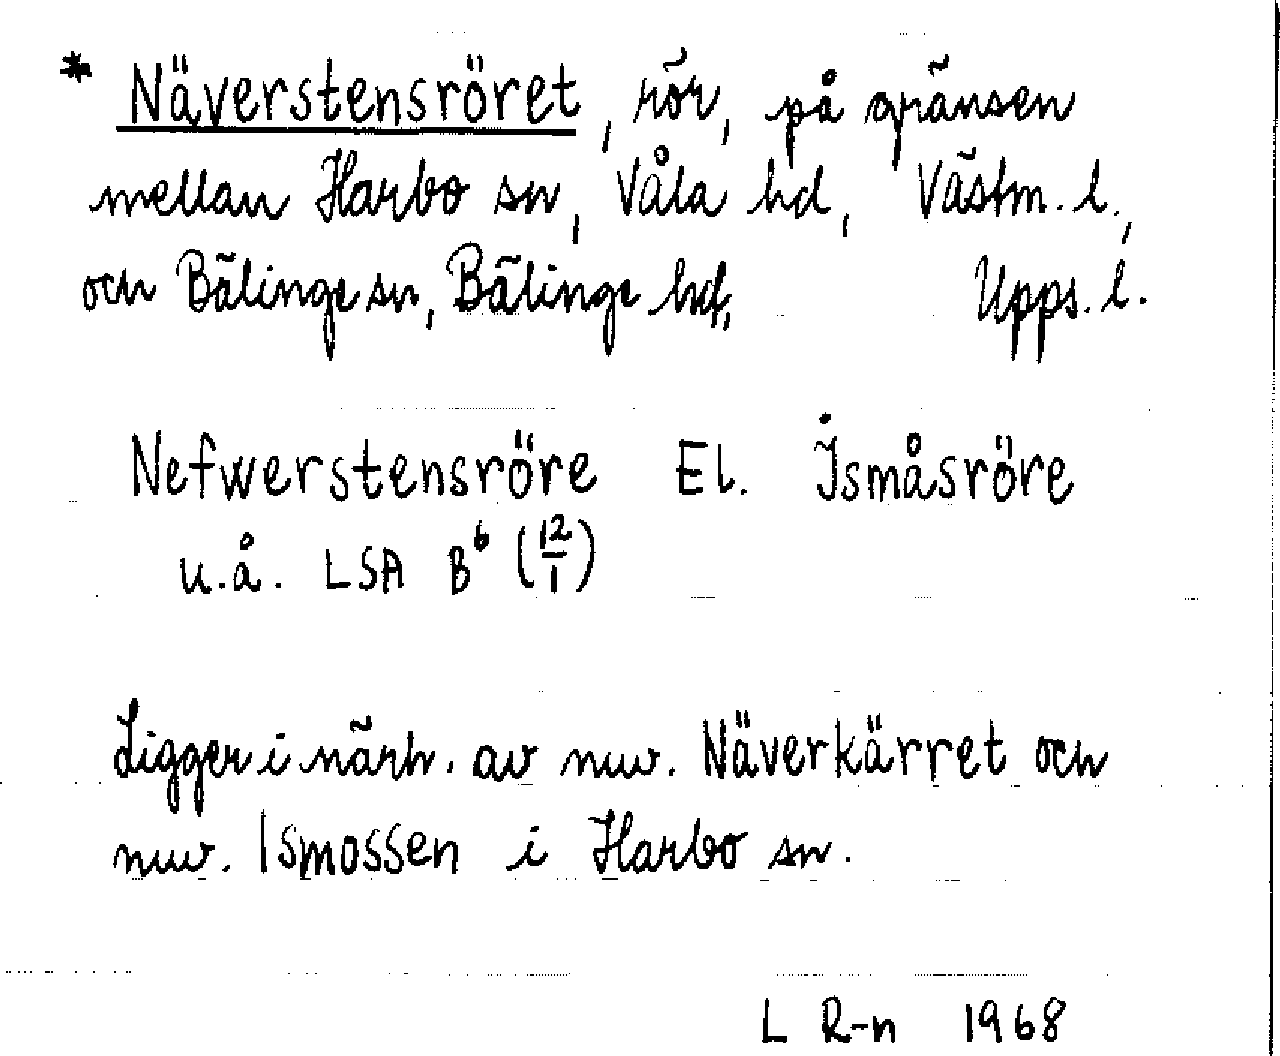 * Näverstensröret, rör, på gränsen
mellan Harbo sn, Våla hd, Västm. l.,
och Bälinge sn, Bälinge hd, Upps. l.
Nefwerstensröre El. Jsmåsröre
u.å. LSA B⁶ (12/1)
Ligger i närh. av nuv. Näverkärret och
nuv. Ismossen i Harbo sn.
L R-n 1968